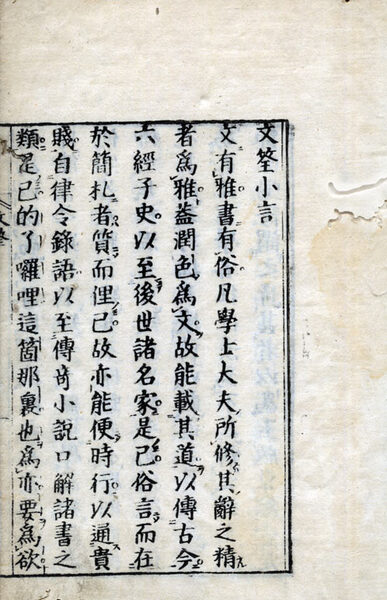 文筌小言
文有雅書有俗凡學士大夫所修其辭之精
者為雅葢潤色為文故能載其道以傳古今
六經子史以至後世諸名家是已俗言而在
於簡札者質而俚已故亦能便時行以通貴
賤自律令錄語以至傳奇小說口解諸書之
類是已的了囉哩這箇那裏也為亦要為欲